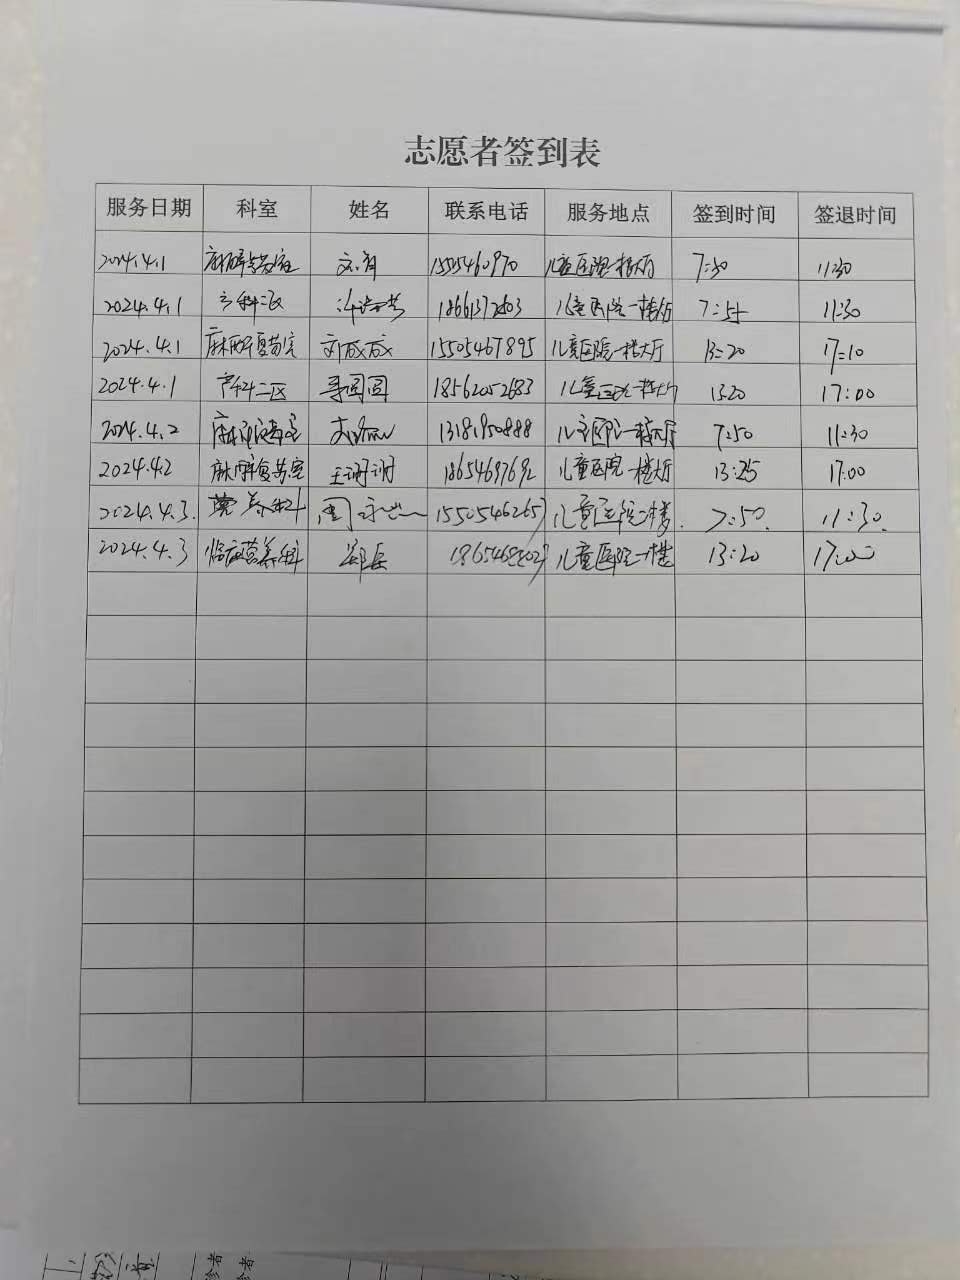 志愿者签到表
服务日期 科室 姓名 联系电话 服务地点 签到时间 签退时间
2024.4.1 麻醉复苏室 15505460970 儿童医院一楼大厅 7:50 11:30
2024.4.1 产科二区 18661372603 儿童医院一楼大厅 7:55 11:30
2024.4.1 麻醉复苏室 刘成成 15505467895 儿童医院一楼大厅 13:20 17:10
2024.4.1 产科二区 寻圆圆 18562052683 儿童医院一楼大厅 13:20 17:00
2024.4.2 麻醉复苏室 13181950888 儿童医院一楼大厅 7:50 11:30
2024.4.2 麻醉复苏室 王珊珊 18654697692 儿童医院一楼大厅 13:25 17:00
2024.4.3. 营养科 周 15505462657 儿童医院一楼. 7:50. 11:30.
2024.4.3 临床营养科 儿童医院一楼 13:20 17:00